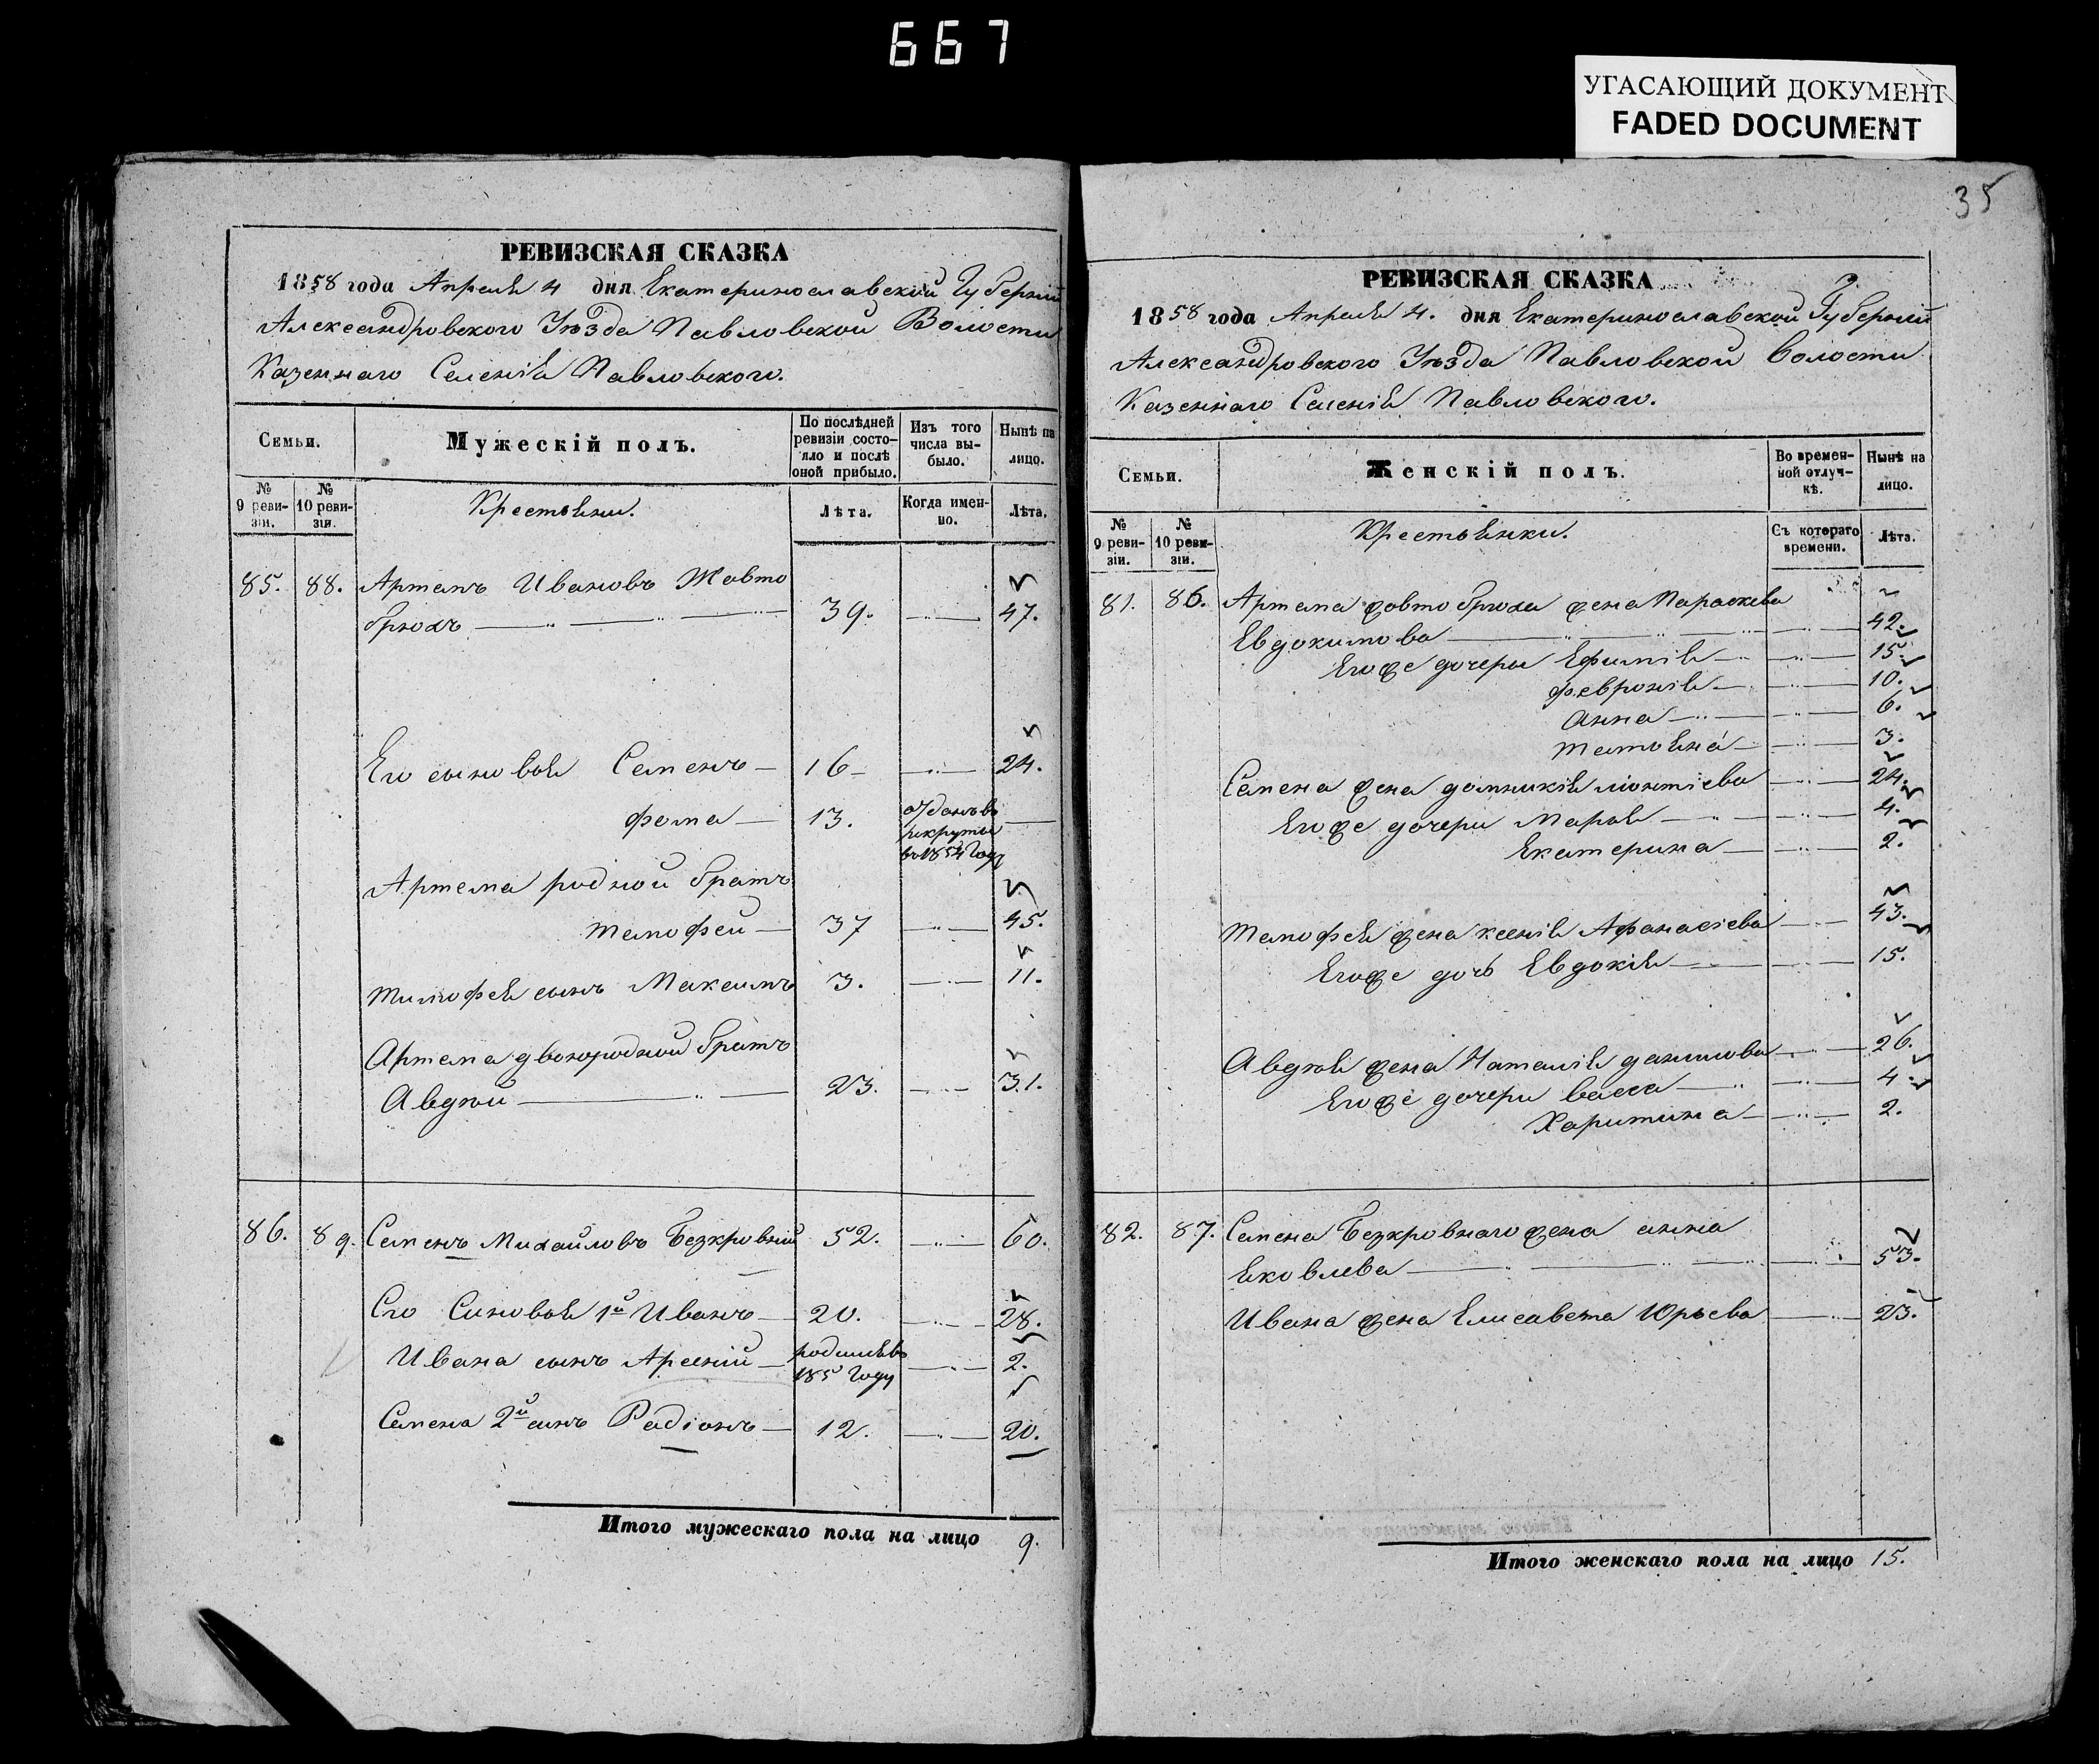 667
УГАСАЮЩИЙ ДОКУМЕНТ
FADED DOCUMENT
РЕВИЗСКАЯ СКАЗКА
1858 года Апреля 4 дня Екатеринославской Губернии
Александровского Уезда Павловской Волости
Казеннаго Селенія Павловского.
Семьи.
Мужескій полъ.
По послѣдней ревизіи состояло и послѣ оной прибыло.
Изъ того числа выбыло.
Нынѣ на лицо.
№ 9 ревизіи.
№ 10 ревизіи.
Крестьяни.
Лѣта.
Когда именно.
Лѣта.
85. 88. Артемъ Ивановъ Жовто
брюхъ 39. 47.
Его сыновья Семенъ 16 24.
Фома 13. отданъ въ рекруты въ 1854 году
Артема родной братъ
Тимофей 37 45.
Тимофея сынъ Максимъ 3. 11.
Артема двоюродной братъ
Авдѣй 23. 31.
86. 89. Семенъ Михайловъ Безкровній 52. 60.
Его Сыновья 1й Иванъ 20. 28.
Ивана сынъ Арсеній родился въ 185 году 2.
Семена 2й сынъ Радіонъ 12. 20.
Итого мужескаго пола на лицо 9.
35
РЕВИЗСКАЯ СКАЗКА
1858 года Апреля 4. дня Екатеринославской Губернии
Александровского Уезда Павловской Волости
Казеннаго Селенія Павловского.
Семьи.
Женскій полъ.
Во временной отлучкѣ.
Нынѣ на лицо.
№ 9 ревизіи.
№ 10 ревизіи.
Крестьянки.
Съ котораго времени.
Лѣта.
81. 86. Артема жовтобрюха жена Параскева
Евдокимова 42.
Егоже дочери Ефимія 15.
Февронія 10.
Анна 6.
Татьяна 3.
Семена жена домникія 24.
Егоже дочери Марья 4.
Екатерина 2.
Тимофея жена ксенія Афанасіева 43.
Егоже дочь Евдокія 15.
Авдѣя жена Наталія данилова 26.
Егоже дочери васса 4.
Харитина 2.
82. 87. Семена Безкровнаго жена анна
Яковлева 53.
Ивана жена Елисавета Юрьева 23.
Итого женскаго пола на лицо 15.